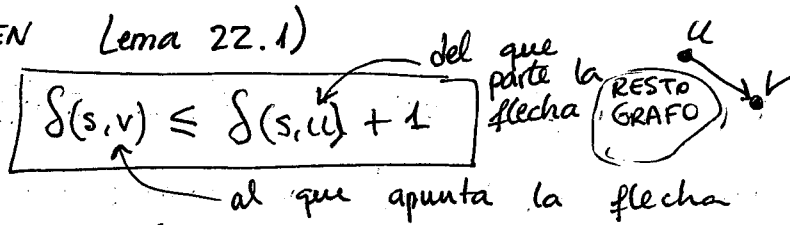 EN Lema 22.1)
δ(s,v) ≤ δ(s,u) + 1
del que
parte la
flecha
al que apunta la flecha
u
v
RESTO
GRAFO